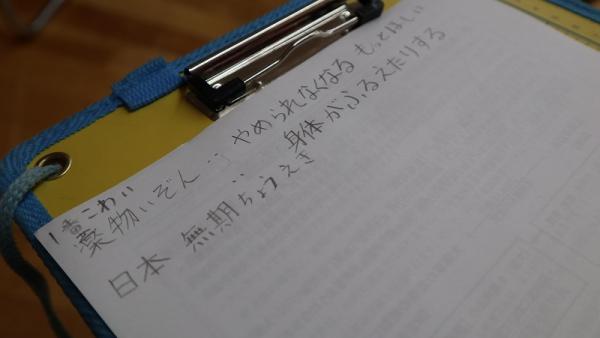 1番こわい
薬物いぞん…」やめられなくなる もっとほしい
身体がふるえたりする
日本 無期ちょうえき